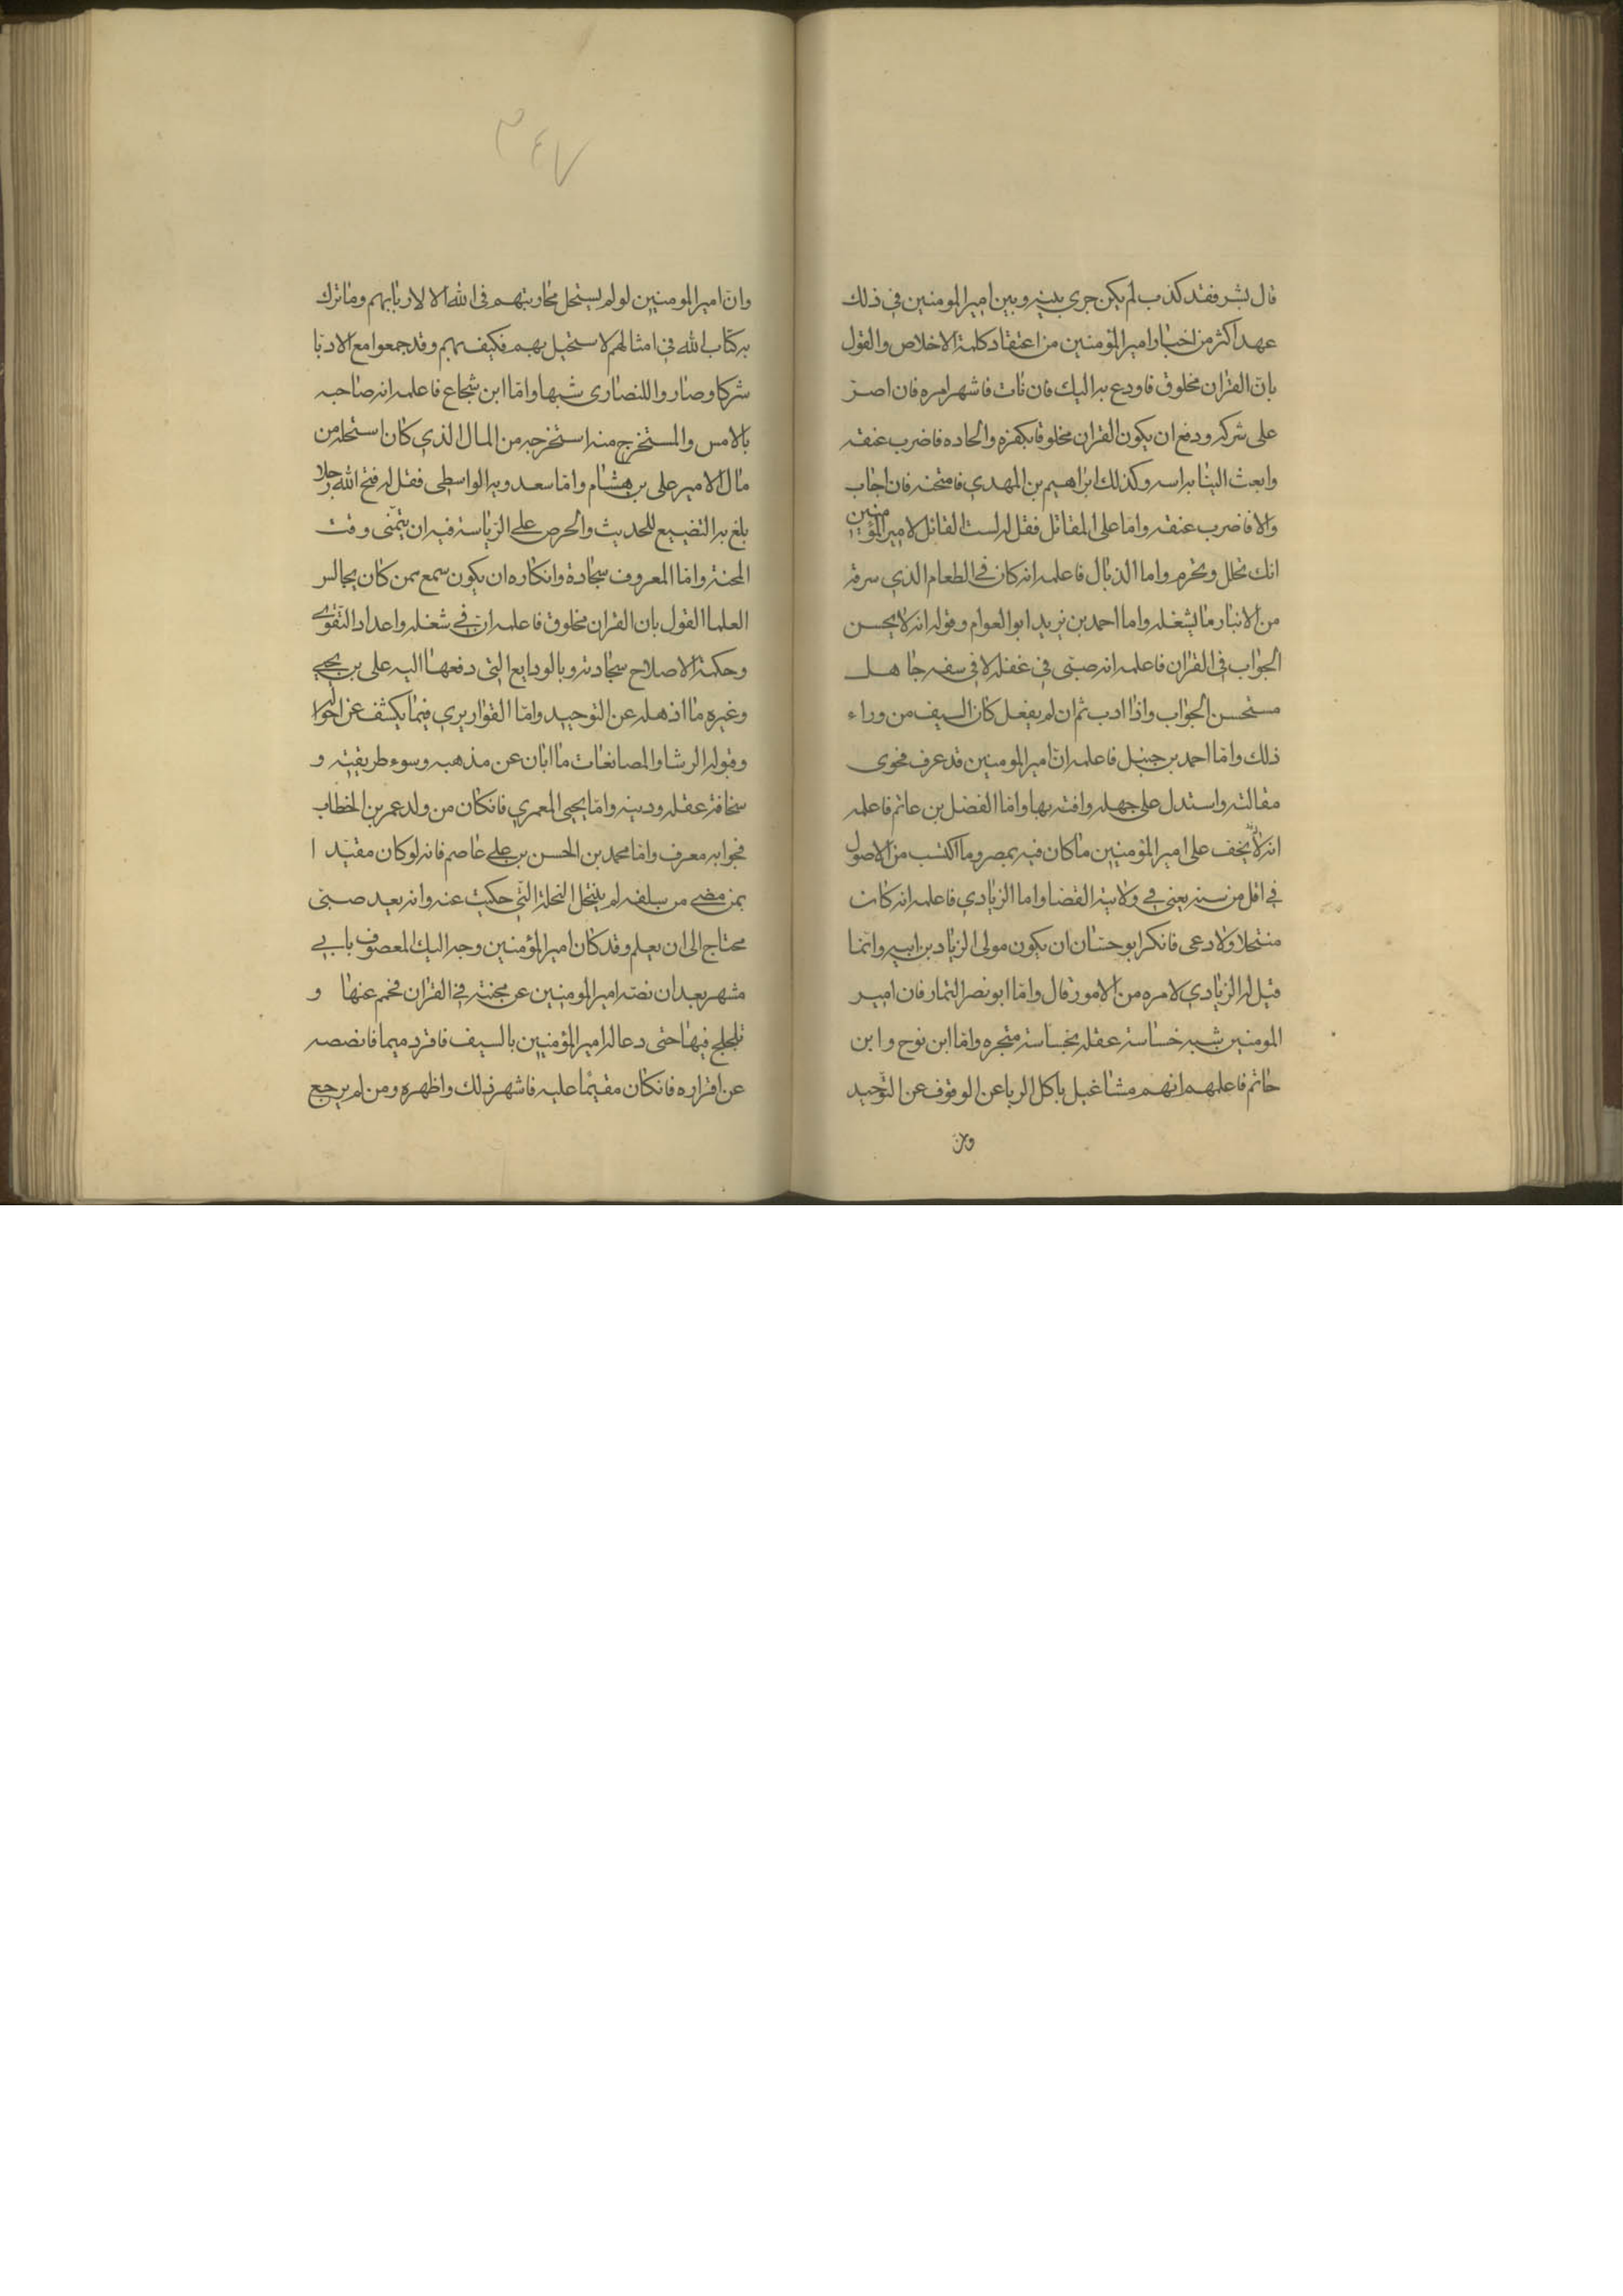 قال بشر فقد كذب لم يكن جرى بينه وبين امير المومنين في ذلك
عهد اكثر من اخبار امير المؤمنين من اعتقاد كلمة الاخلاص والقول
بان القران مخلوق فاودع به اليك فان تاب فاشهر امره فان اصر
على شركه ودفع ان يكون القران مخلوقا بكفره والحاده فاضرب عنقه
وابعث الينا براسه وكذلك ابراهيم بن المهدي فامتحنه فان اجاب
والا فاضرب عنقه واما على المقاتل فقل له لست القائل لامير المؤمنين
انك تحلل وتحرم واما الذيال فاعلمه انه كان في الطعام الذي سرقه
من الانبار ما يشغله واما احمد بن يزيد ابو العوام وقوله انه لا يحسن
الجواب في القران فاعلمه انه صبى في عقله لا في سنه جاهل
مستحسن الجواب واذا ادب ثم ان لم يفعل كان السيف من وراء
ذلك واما احمد بن حنبل فاعلمه ان امير المومنين قد عرف فحوى
مقالته واستدل على جهله وافته بها واما الفضل بن غانم فاعلمه
انه لم يخف على امير المؤمنين ما كان فيه بمصر وما اكتسب من الاصول
في اقل من سنه يعنى في ولايته القضا واما الزيادي فاعلمه انه كان
منتحلا ولا دعى فانكر ابو حسان ان يكون مولى الزياد بن ابيه وانما
قيل له الزيادي لامره من الامور قال واما ابو نصر التمار فان امير
المومنين شبه خساسة عقله بخساسة متجره واما ابن نوح وابن
حاتم فاعلمهم انهم مشاغيل باكل الربا عن الوقوف عن التوحيد
وان
٣٤٧
وان امير المومنين لو لم يستحل محاربتهم في الله الا لاربايهم وما نزل
به كتاب الله في امثالهم لاستحيل بهم فكيف بهم وقد جمعوا مع الاربا
شركا وصاروا للنصارى شبها واما ابن شجاع فاعلمه انه صاحبه
بالامس والمستخرج منه استخرجه من المال الذي كان استحله من
مال الامير على بن هشام واما سعدويه الواسطى فقل له قبح الله رجلا
بلغ به التضييع للحديث والحرص على الرياسة فيه ان يتمنى وقت
المحنة واما المعروف بسجادة وانكاره ان يكون سمع ممن كان يجالس
العلما القول بان القران مخلوق فاعلمه ان في شغله واعداد التقوى
وحكمة الاصلاح سجادته وبالودايع التي دفعها اليه على بن يحيى
وغيره ما اذهله عن التوحيد واما القواريري فيما يكشف عن احواله
وقوله الرشا والمصانعات ما ابان عن مذهبه وسوء طريقته و
سخافة عقله ودينه واما يحيى المعمري فانكان من ولد عمر بن الخطاب
فجوابه معرف واما محمد بن الحسن بن على عاصم فانه لو كان مقتيدا
بمن مضى من سلفه لم ينتحل النحلة التي حكيت عنه وانه بعيد صبى
محتاج الى ان يعلم وقد كان امير المؤمنين وجه اليك المعصوف بابي
مشهر بعد ان نصه امير المومنين عن محنته في القران فجمجم عنها و
تلجلج فيها حتى دعا له امير المؤمنين بالسيف فاقر دميما فانصصه
عن اقراره فانكان مقيما عليه فاشهر ذلك واظهره ومن لم يرجع